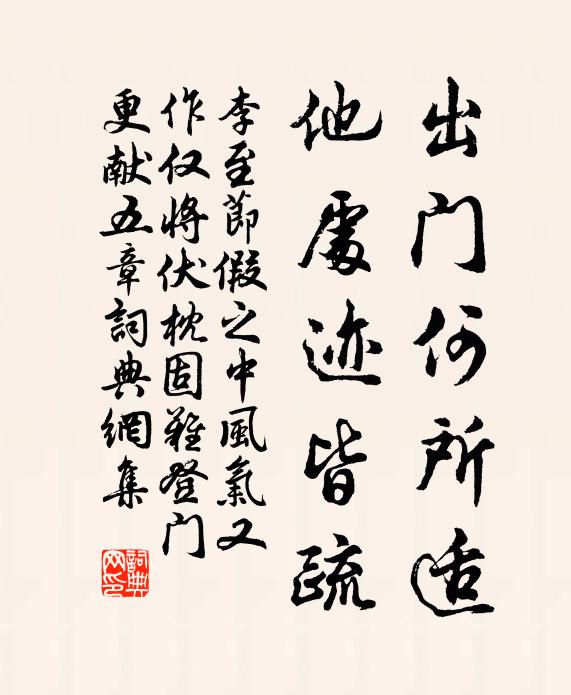 出门何所适
他處迹皆疏
李至節假之中風氣又
作仅將伏枕固難登门
更献五章詞典網集
詞典网印